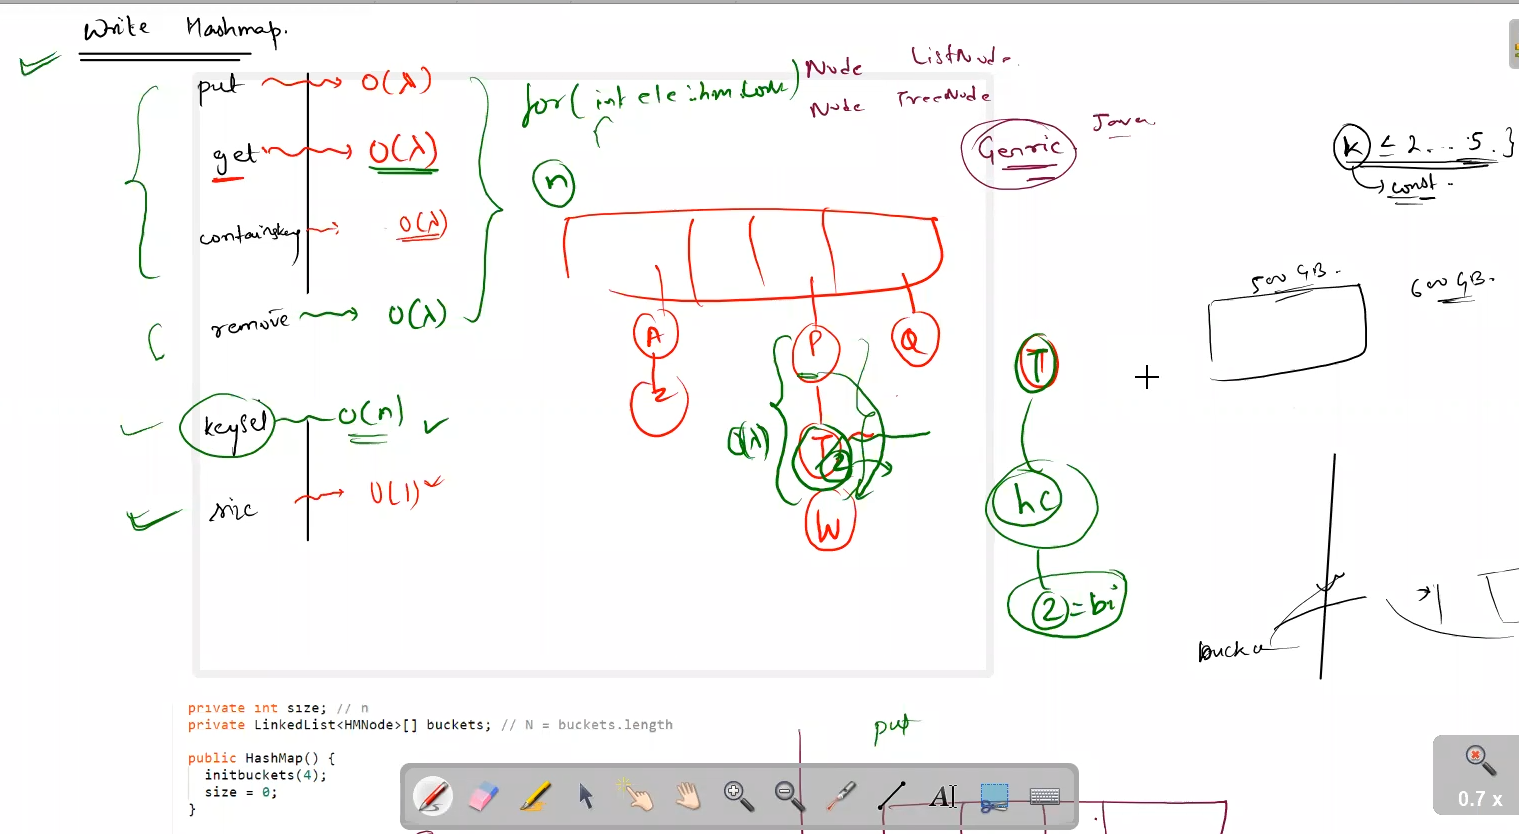 Write Hashmap.
put O(λ)
get O(λ)
containskey O(λ)
remove O(λ)
keyset O(n)
size O(1)
for(int ele : hm.
{
Node ListNode.
Node TreeNode
Genric
Java
n
K ≤ 2 ... 5. }
const.
500 GB.
600 GB.
A
2
P
Q
T
2
W
O(λ)
T
hc
2 = bi
private int size; // n
private LinkedList<HMNode>[] buckets; // N = buckets.length
public HashMap() {
initbuckets(4);
size = 0;
}
put
A
0.7 x